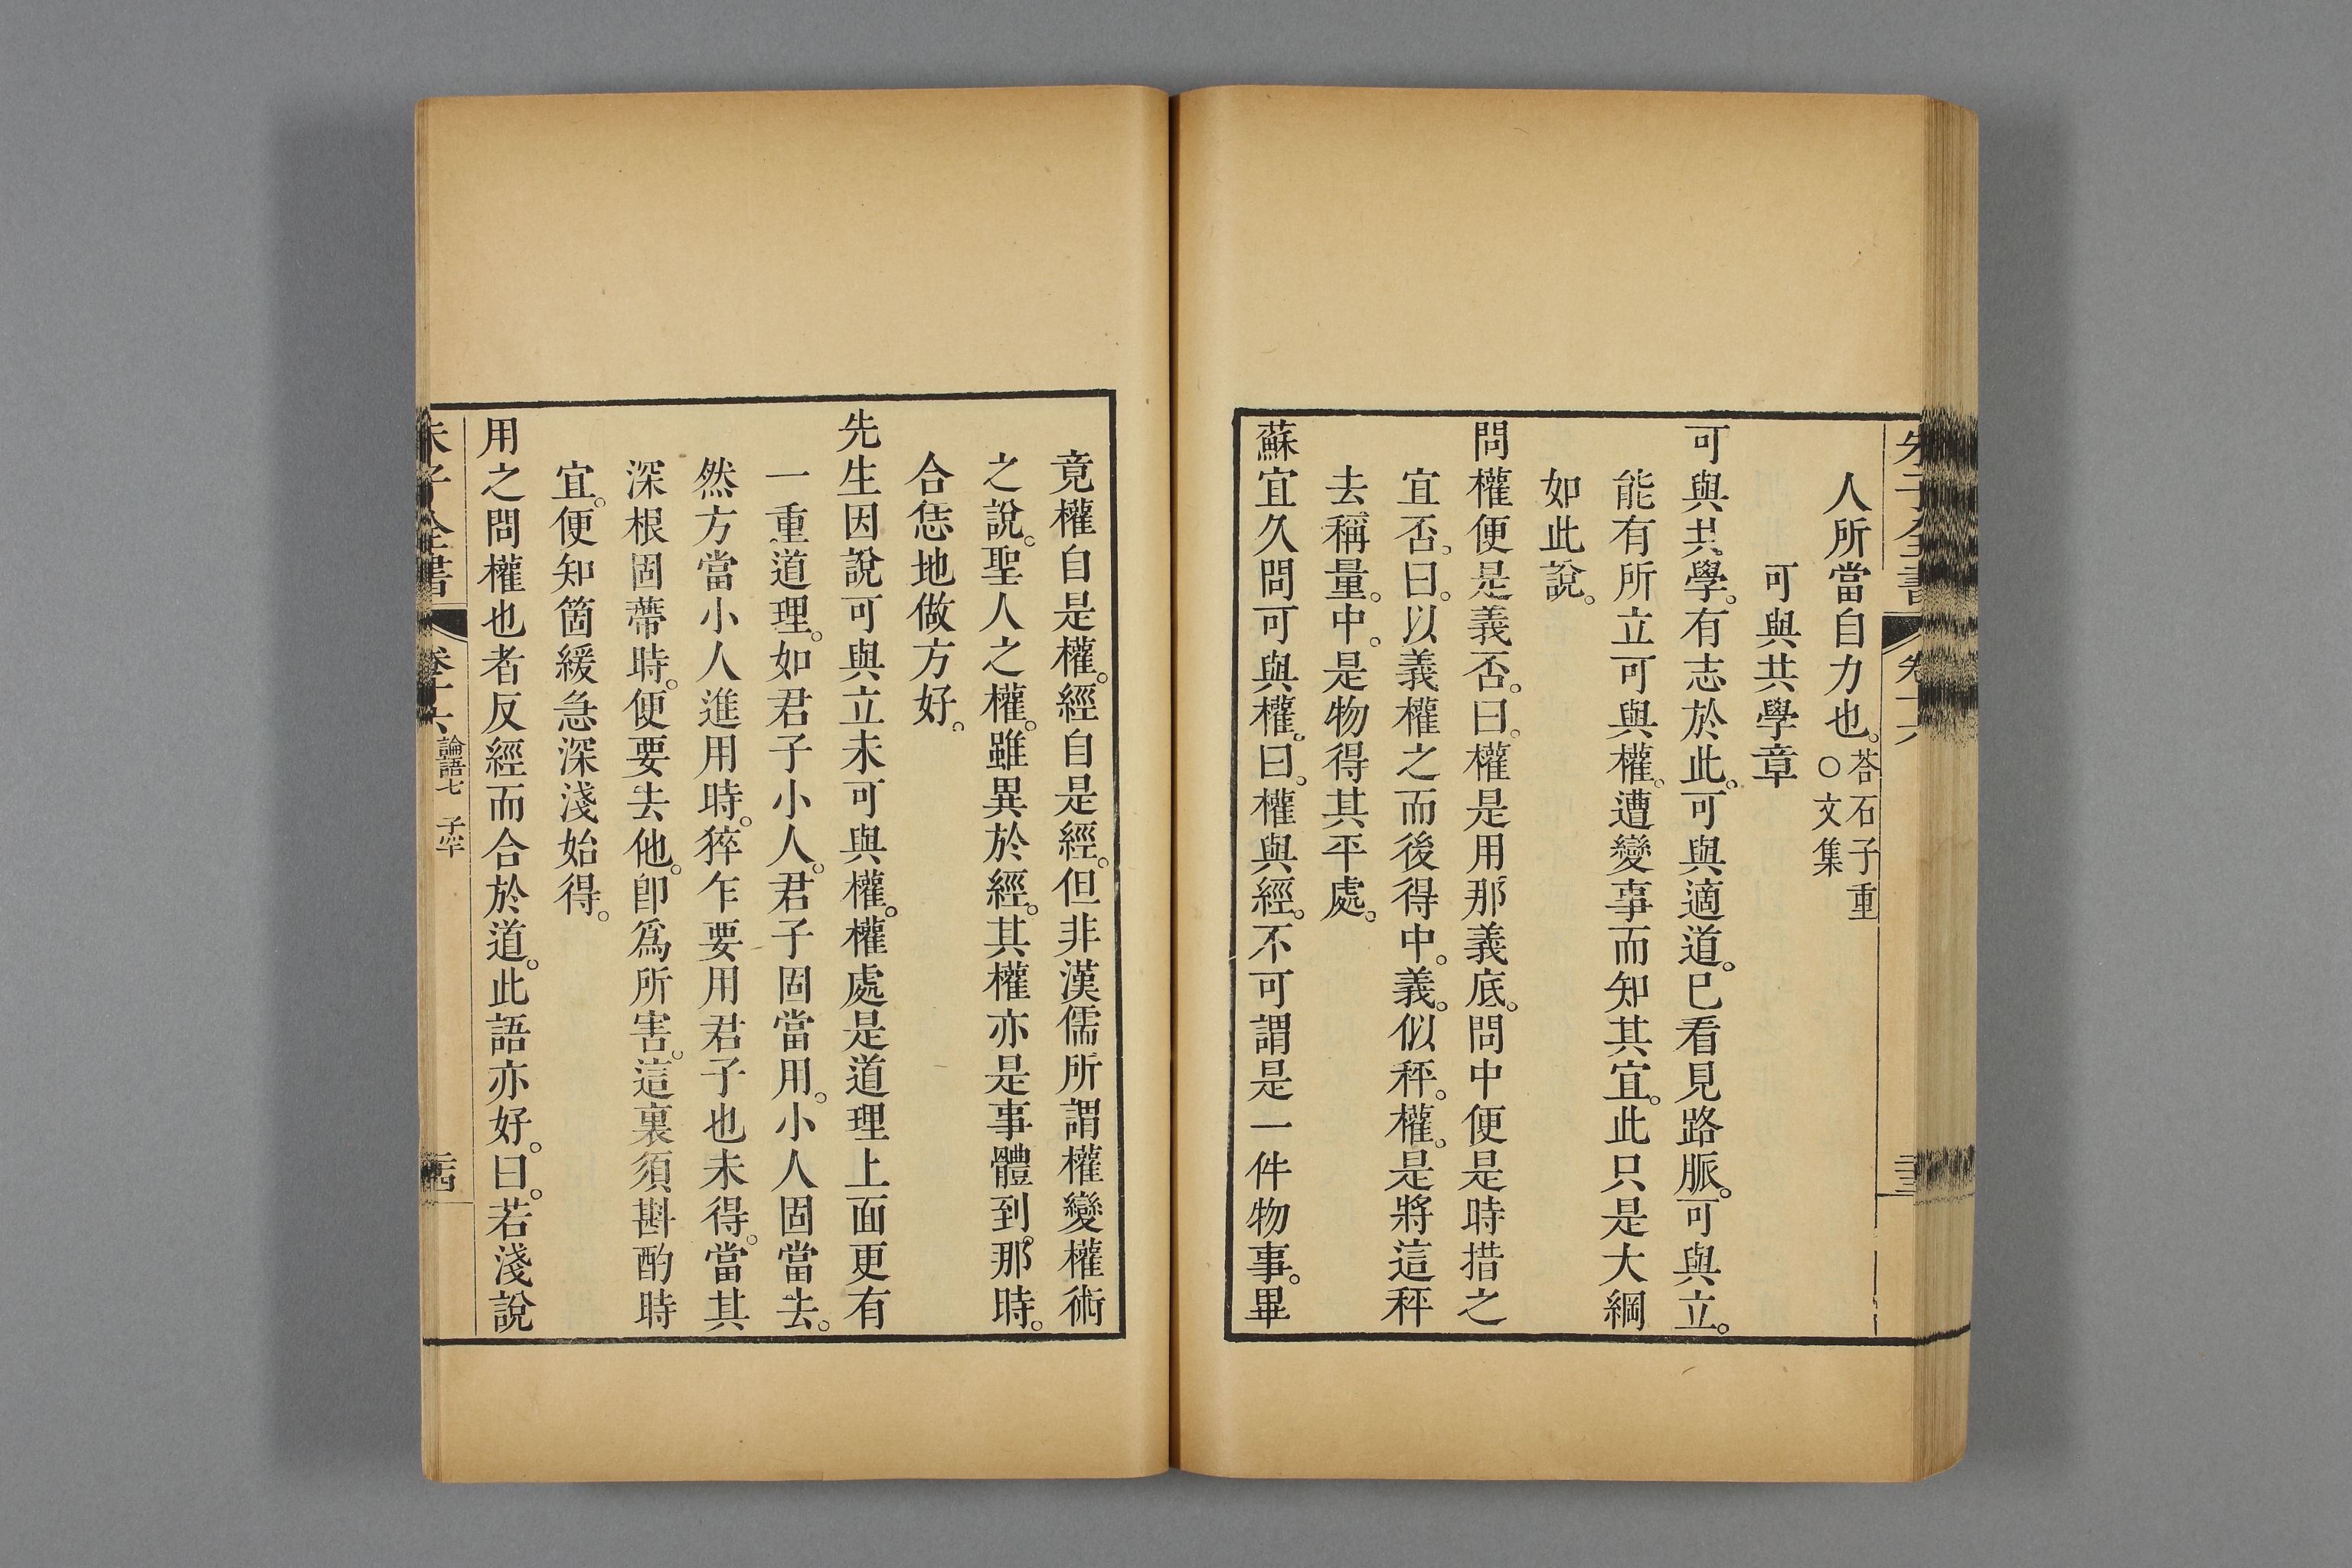 朱子全書 卷十六
人所當自力也。答石子重○文集
可與共學章
可與共學。有志於此。可與適道。已看見路脈。可與立。
能有所立可與權。遭變事而知其宜。此只是大綱
如此說。
問權便是義否。曰。權是用那義底。問中便是時措之
宜否。曰。以義權之而後得中。義。似秤。權。是將這秤
去稱量。中。是物得其平處。
蘇宜久問可與權。曰。權與經。不可謂是一件物事。畢
竟權自是權。經自是經。但非漢儒所謂權變權術
之說。聖人之權。雖異於經。其權亦是事體到。那時。
合恁地做方好。
先生因說可與立未可與權。權處是道理上面更有
一重道理。如君子小人。君子固當用。小人固當去。
然方當小人進用時。猝乍要用君子也未得。當其
深根固蔕時。便要去他。卽爲所害。這裏須斟酌時
宜。便知箇緩急深淺始得。
用之問權也者反經而合於道。此語亦好。曰。若淺說
朱子全書 卷十六 論語七 子罕 二十四